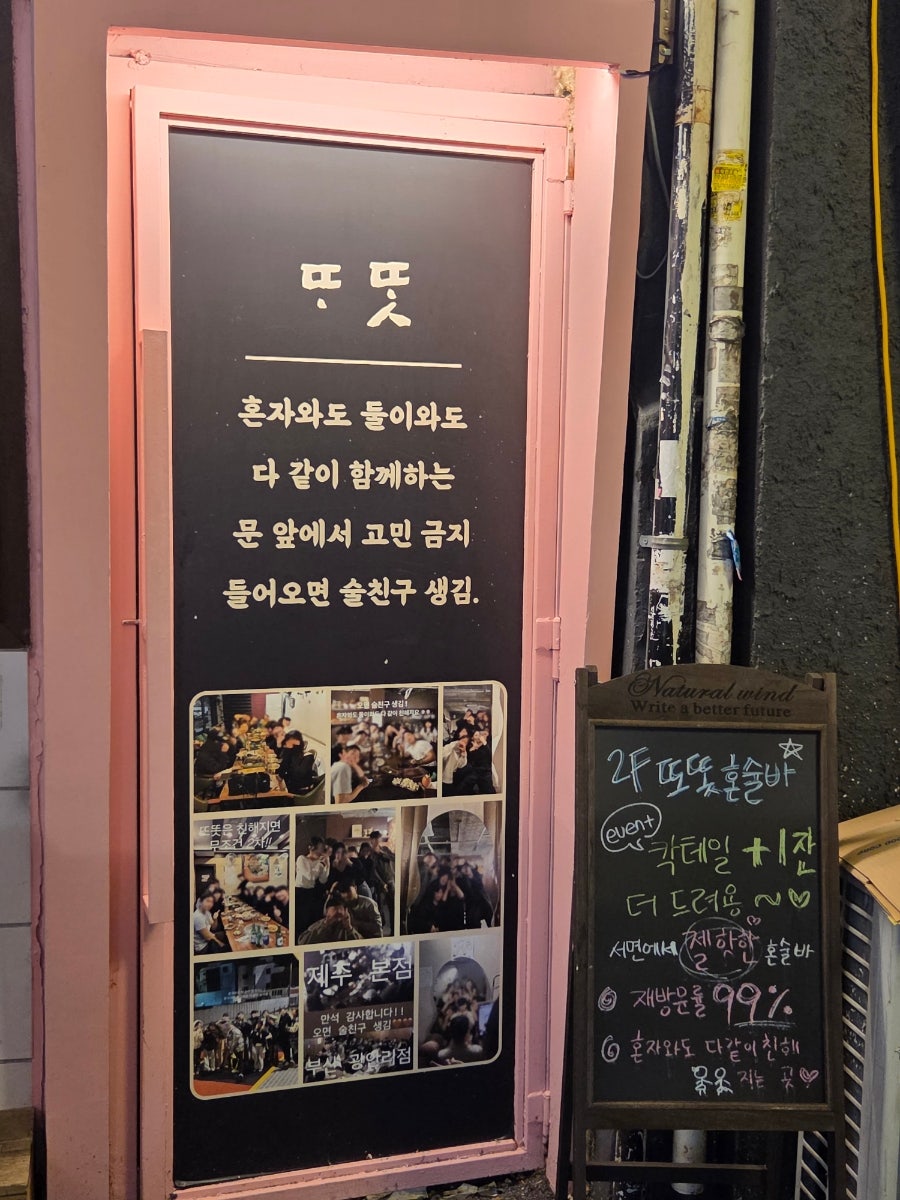 또 똣
혼자와도 둘이와도
다 같이 함께하는
문 앞에서 고민 금지
들어오면 술친구 생김.
오면 술친구 생김!
혼자와도 둘이와도 다 같이 친해지요
또똣은 친해지면
무조건 2차!!
제주 본점
만석 감사합니다!!
오면 술친구 생김
부산 광안리점
Natural wind
Write a better future
2F 또똣 혼술바
event
칵테일 +1잔
더 드려용~♡
서면에서 젤 핫한 혼술바
재방문률 99%
혼자와도 다같이 친해
지는 곳♡